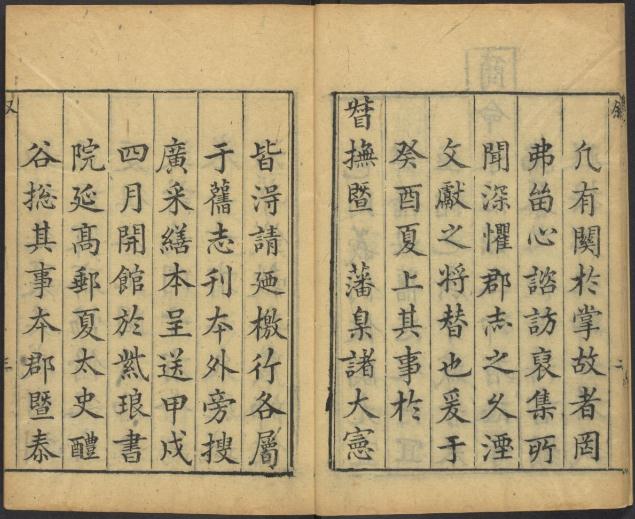 凢有關於掌故者罔
弗畱心諮訪裒集所
聞深懼郡志之久湮
文獻之将替也爰于
癸酉夏上其事於
督撫暨 藩臬諸大憲
皆淂請廼檄行各屬
于舊志刋夲外旁搜
廣采繕本呈送甲戍
四月開館於紫琅書
院延髙郵夏太史醴
谷揔其事夲郡暨泰